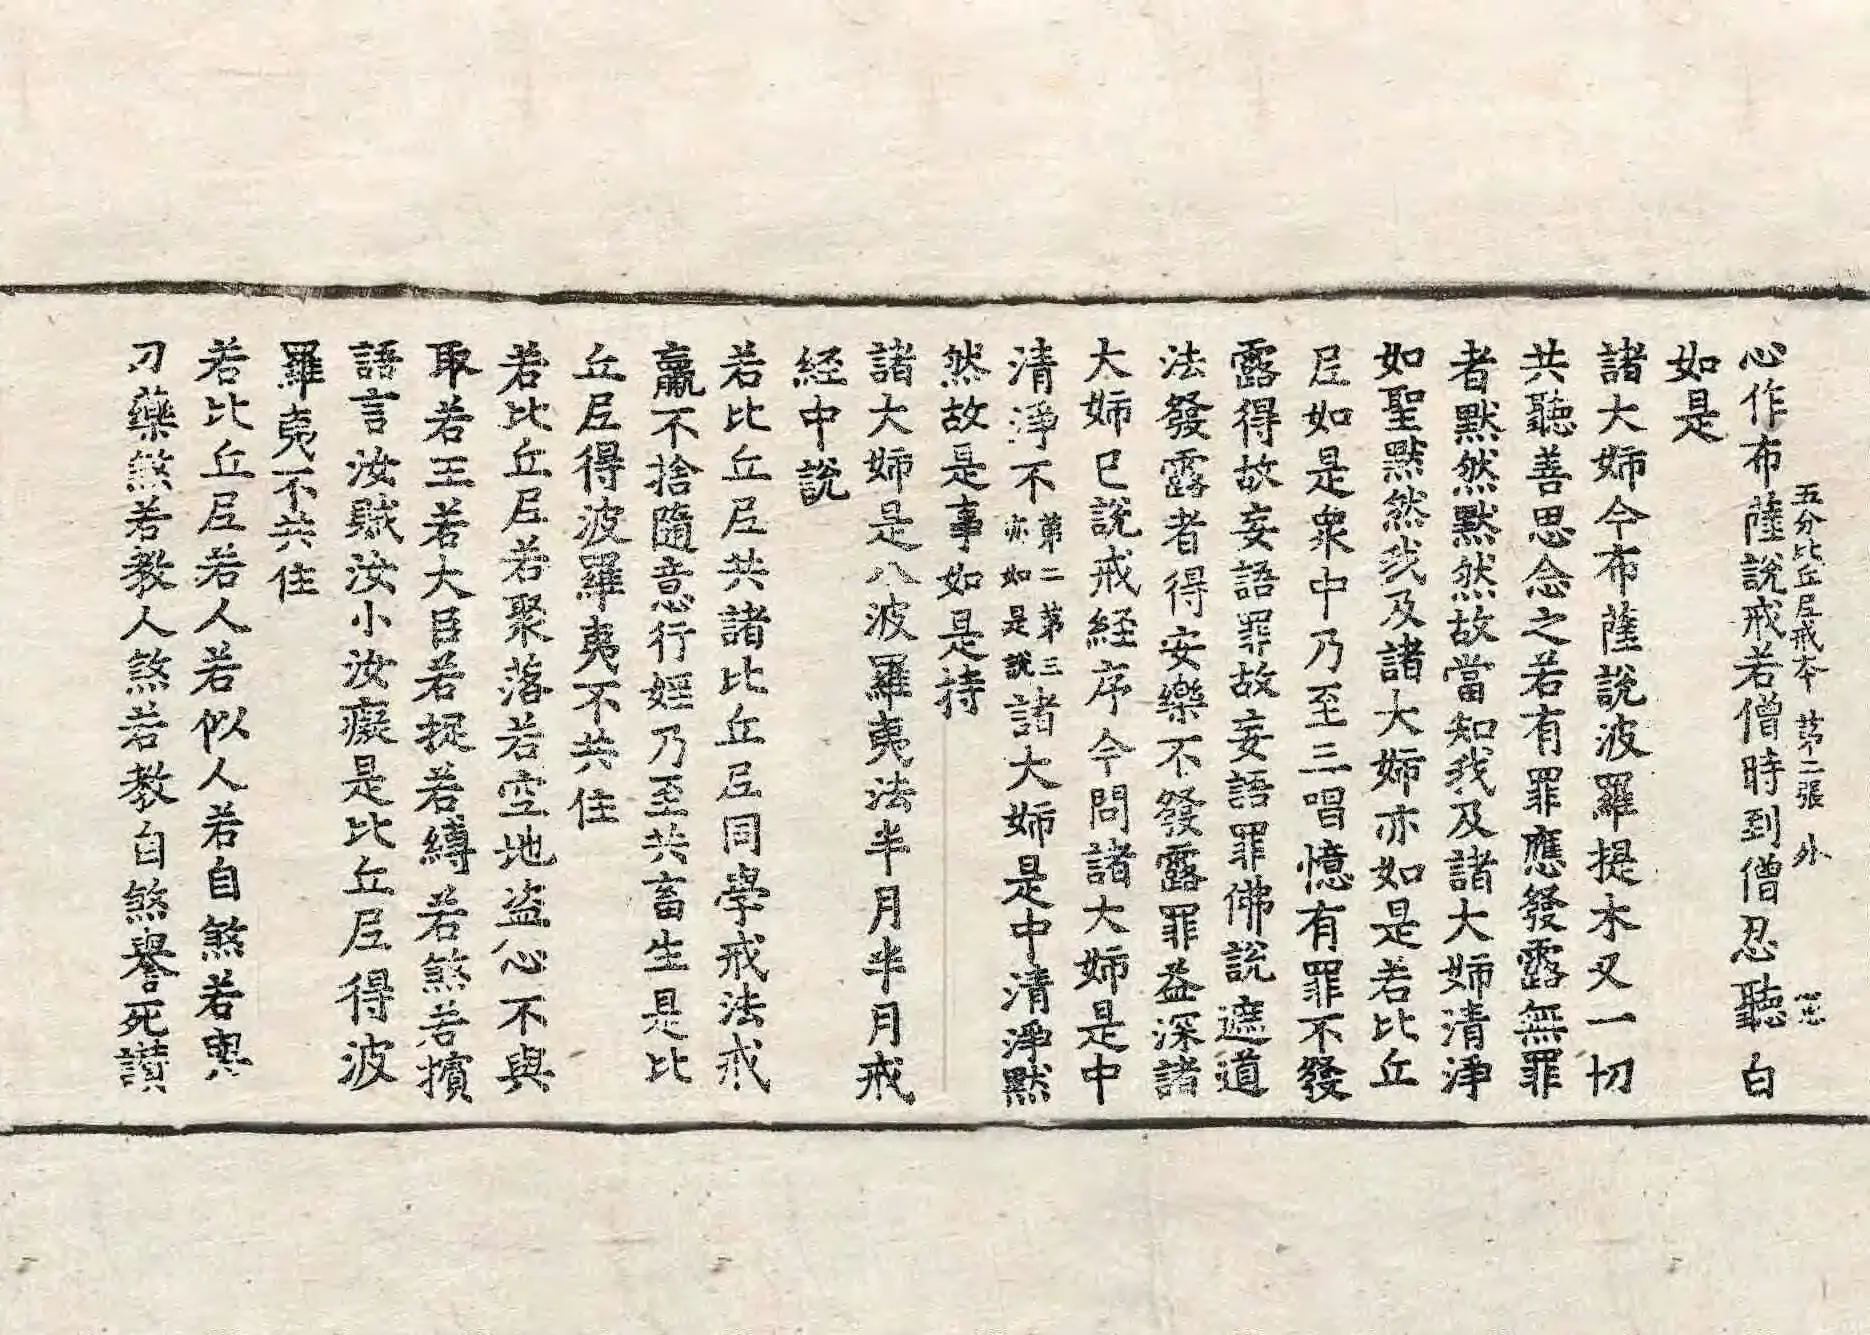 五分比丘尼戒本 第二張 外
心作布薩說戒若僧時到僧忍聽白
如是
諸大姉今布薩說波羅提木叉一切
共聽善思念之若有罪應發露無罪
者默然默然故當知我及諸大姉清淨
如聖默然我及諸大姉亦如是若比丘
尼如是衆中乃至三唱憶有罪不發
露得故妄語罪故妄語罪佛說遮道
法發露者得安樂不發露罪益深諸
大姉已說戒經序今問諸大姉是中
清淨不第二第三亦如是說諸大姉是中清淨默
然故是事如是持
諸大姉是八波羅夷法半月半月戒
經中說
若比丘尼共諸比丘尼同學戒法戒
羸不捨隨意行婬乃至共畜生是比
丘尼得波羅夷不共住
若比丘尼若聚落若空地盗心不與
取若王若大臣若捉若縛若煞若擯
語言汝賊汝小汝癡是比丘尼得波
羅夷不共住
若比丘尼若人若似人若自煞若與
刀藥煞若教人煞若教自煞譽死讃